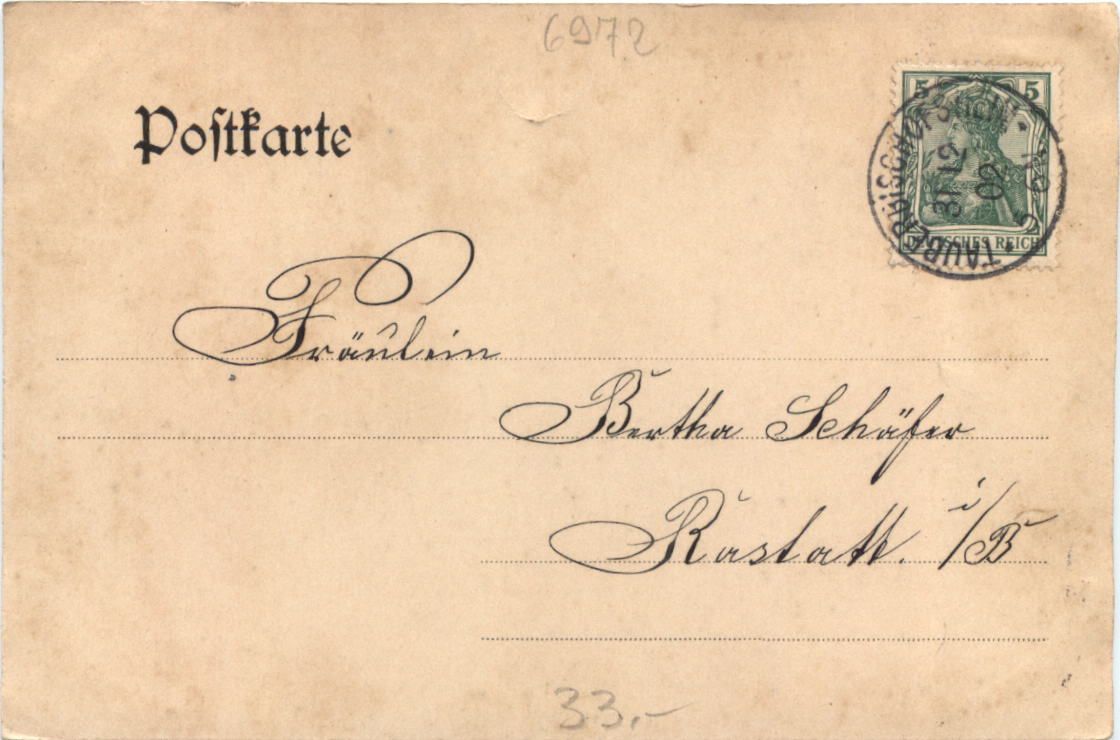 6972
Postkarte
5 5
DEUTSCHES REICH
TAUBERBISCHOFSHEIM
31 12
02
Fräulein
Bertha Schäfer
Rastatt. i/B
33,-